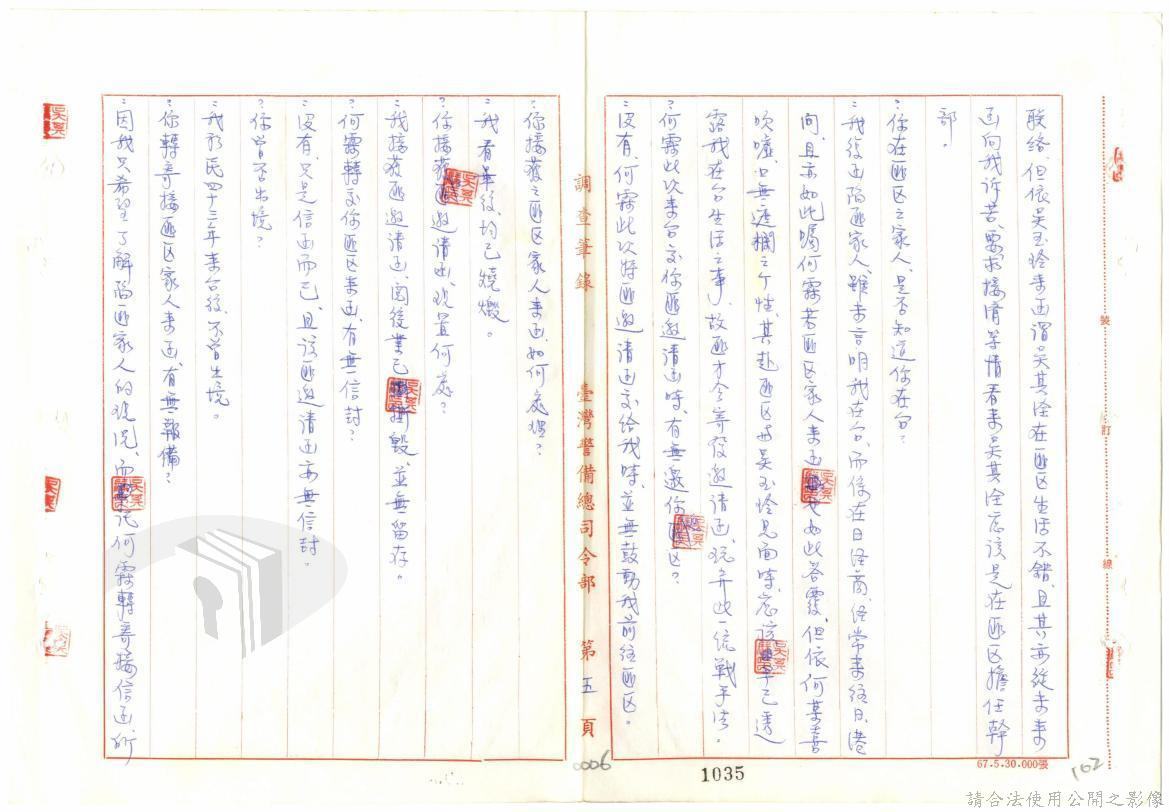 联络,但依吳玉玲来函謂吳其淦在匪区生活不錯,且其亦從未来
函向我訴苦、要求接濟等情看来吳其淦应該是在匪区擔任幹
部。
?你在匪区之家人,是否知道你在台?
:我後函陷匪家人,雖未言明我在台,而係在日経商,经常来往日、港
間,且亦如此囑何霖若匪区家人来函也如此答覆,但依何某喜
吹噓,口無遮攔之个性,其赴匪区与吳玉玲見面時,应該早已透
露我在台生活之事,故匪才会寄發邀请函,玩弄此一統戰手法。
?何霖此次来台交你匪邀请函時,有無邀你匪区?
:沒有,何霖此次将匪邀请函交给我時,並無鼓勵我前往匪区。
調查筆錄 臺灣警備總司令部 第五頁
?你接獲之匪区家人来函,如何處理?
:我看畢後,均已燒燬。
?你接獲匪邀请函,現置何處?
:我接獲匪邀请函,閱後業已撕毀,並無留存。
?何霖轉交你匪区来函,有無信封?
:沒有,只是信函而已,且該匪邀请函亦無信封。
?你曾否出境?
:我於民四十三年来台後,不曾出境。
?你轉寄接匪区家人来函,有無報備?
:因我只希望了解陷匪家人的現況,而託何霖轉寄接信函,所
裝
訂
線
67.5.30.000張
102
0006
1035
請合法使用公開之影像